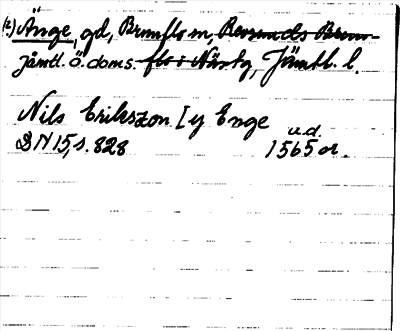 (2.) Änge, gd, Brunflo sn, Revsunds Brun-
jämtl. ö. doms. flo o Näs tg, Jämtl. l.
Nils Erikszon [y Enge
u.d.
DN 15, s. 828 1565 or.